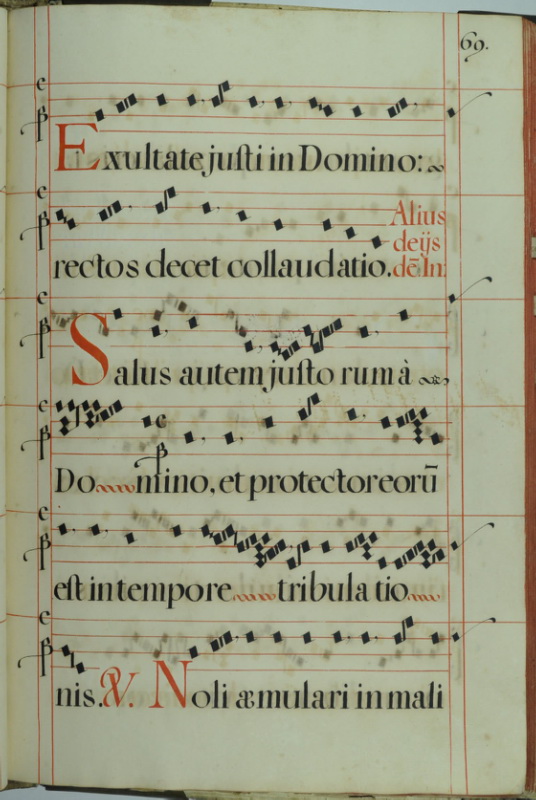 69.
Exultate justi in Domino:
rectos decet collaudatio.
Alius
deijs
dē In:
Salus autem justo rum à
Do mino, et protectoreorū
est in tempore tribula tio
nis. V. Noli æmulari in mali